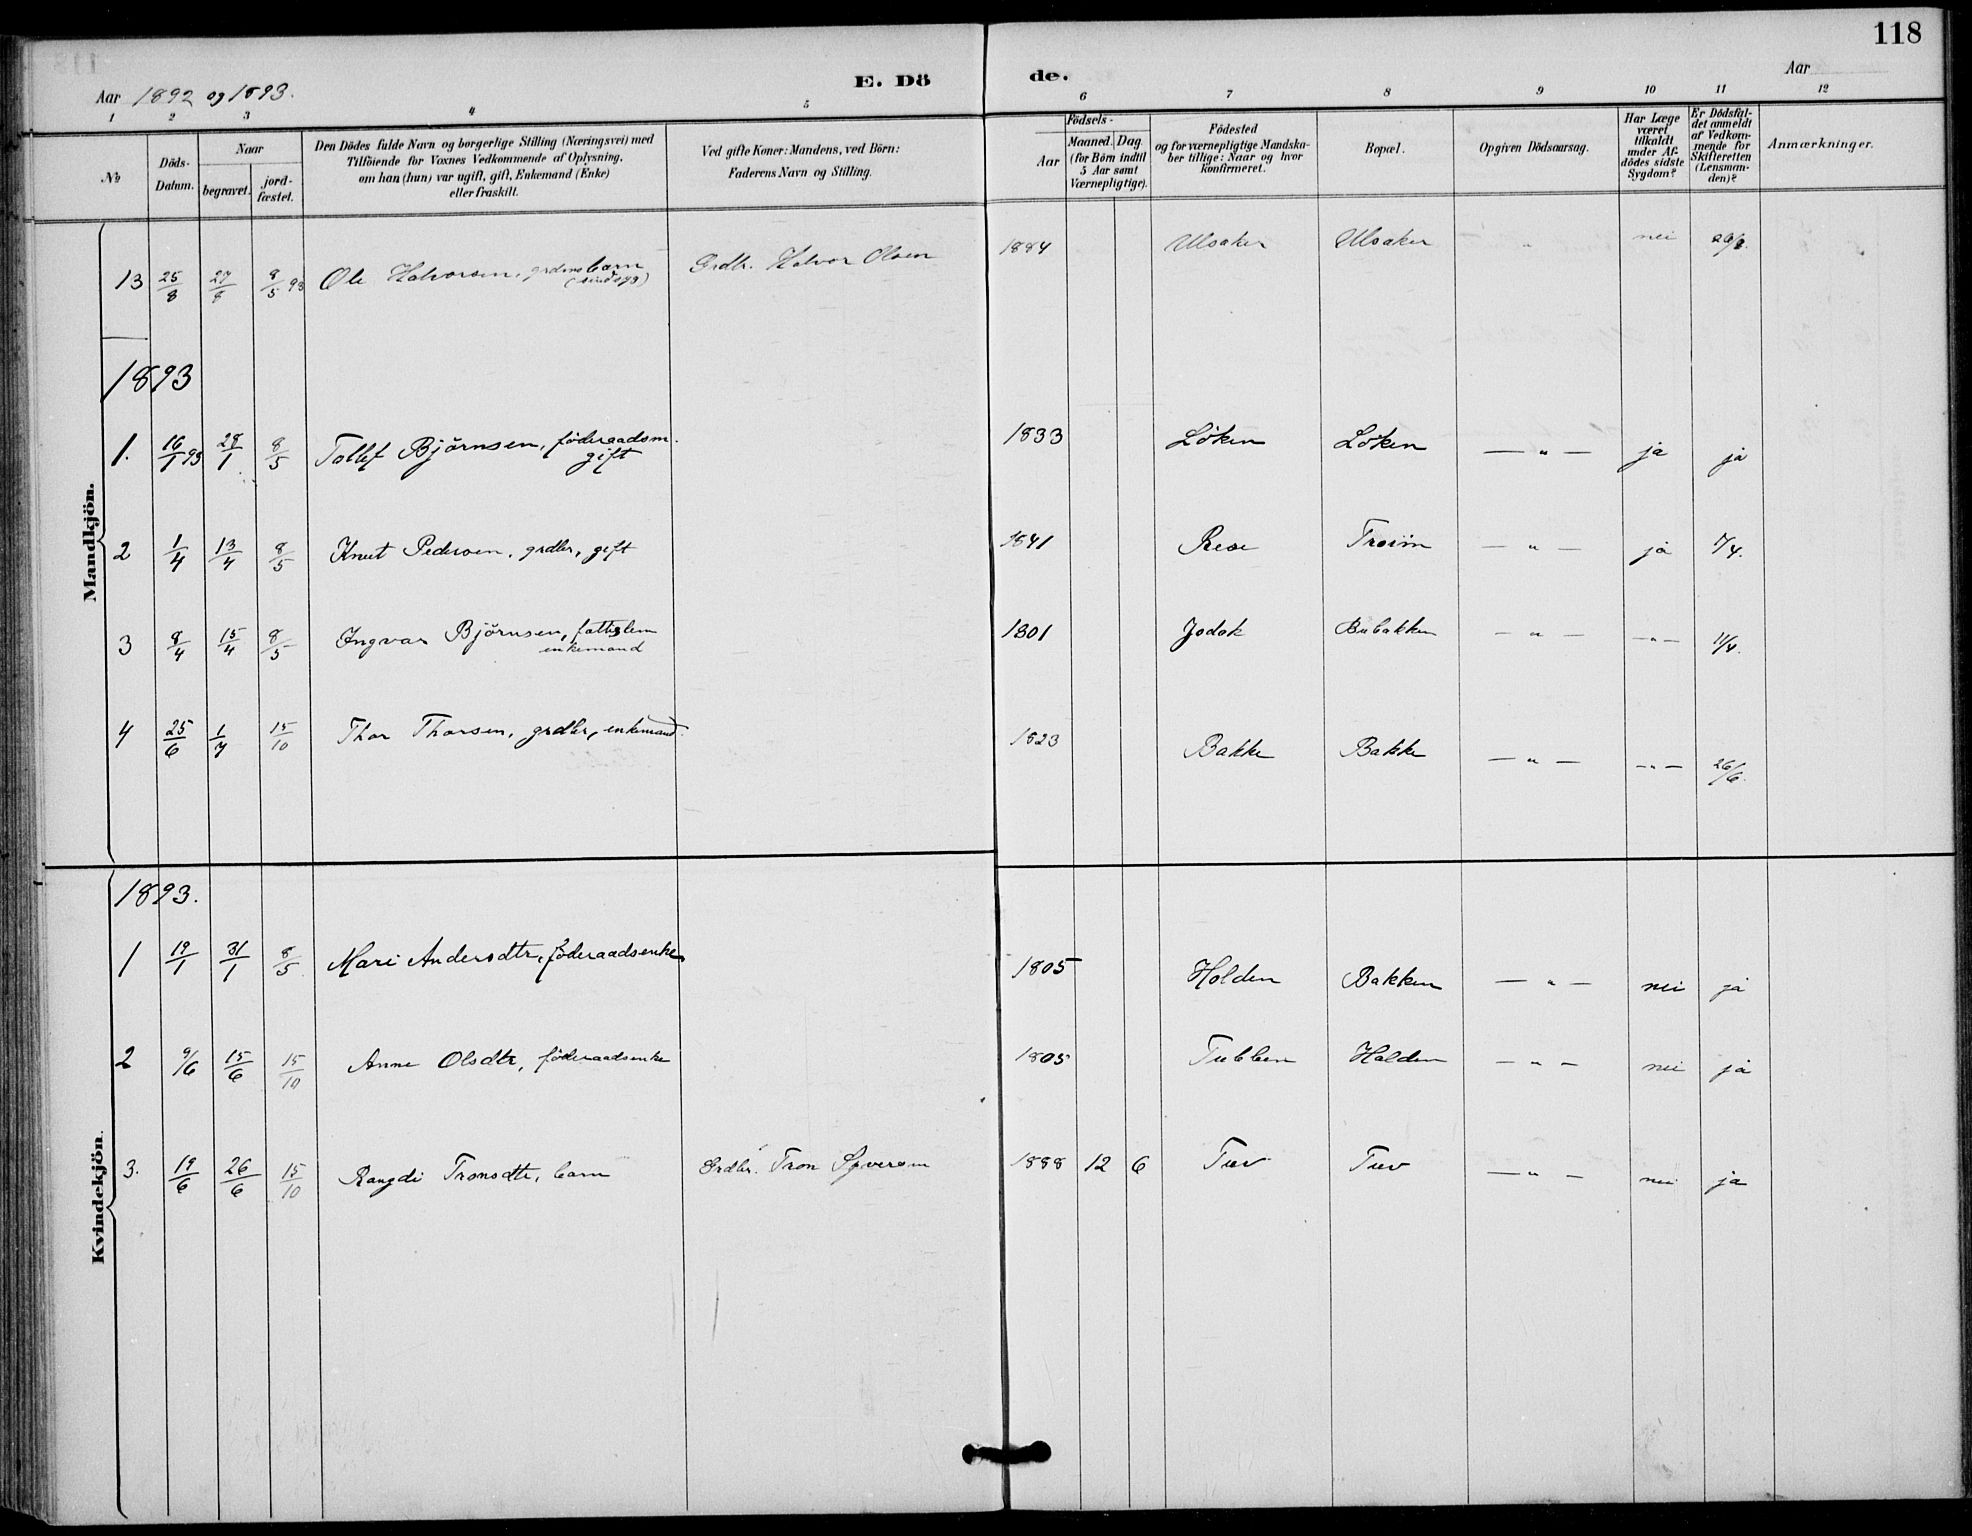 118
Aar 1892 og 1893.
E. Döde.
Aar
1 2 3 4 5 6 7 8 9 10 11 12
№
Döds-Datum.
Naar
begravet.
jord-fæstet.
Den Dödes fulde Navn og borgerlige Stilling (Næringsvei) med
Tilföiende for Voxnes Vedkommende af Oplysning,
om han (hun) var ugift, gift, Enkemand (Enke)
eller fraskilt.
Ved gifte Koner: Mandens, ved Börn:
Faderens Navn og Stilling.
Födsels-
Aar
Maaned. Dag
(for Börn indtil
5 Aar samt
Værnepligtige).
Födested
og for værnepligtige Mandska-
ber tillige: Naar og hvor
konfirmeret.
Bopæl.
Opgiven Dödsaarsag.
Har Læge
været
tilkaldt
under Af-
dödes sidste
Sygdom?
Er Dödsfal-
det anmeldt
af Vedkom-
mende for
Skifteretten
(Lensman-
den)?
Anmærkninger.
Mandkjön.
13 25/8 27/8 8/5 93 Ole Halvorsen, grdmsbarn Grdbr. Halvor Olsen 1884 Ulsaker Ulsaker " nei
(sindsyg)
1893
1. 16/1 93 28/1 8/5 Tollef Björnsen, föderaadsm. 1833 Löken Löken — " — ja ja
gift
2 1/4 13/4 8/5 Knut Pedersen, grdbr, gift 1841 Rese Troim — " — ja
3 8/4 15/4 8/5 Ingvar Björnsen, fattiglem 1801 Jodok — " — — " — 11/4.
enkemand
4 25/6 1/7 15/10 Thor Thorsen, grdbr, enkemand 1823 Bakke Bakke — " — — " — 26/6.
Kvindekjön.
1893.
1 19/1 31/1 8/5 Mari Andersdtr, föderaadsenke 1805 Holden Bakken — " — nei ja
2 9/6 15/6 15/10 Anne Olsdtr, föderaadsenke 1805 Tubben Holden — " — nei ja
3. 19/6 26/6 15/10 Rangdi Tronsdtr, barn Grdbr. Tron Syversen 1888 12 6 Tuv Tuv — " — nei ja